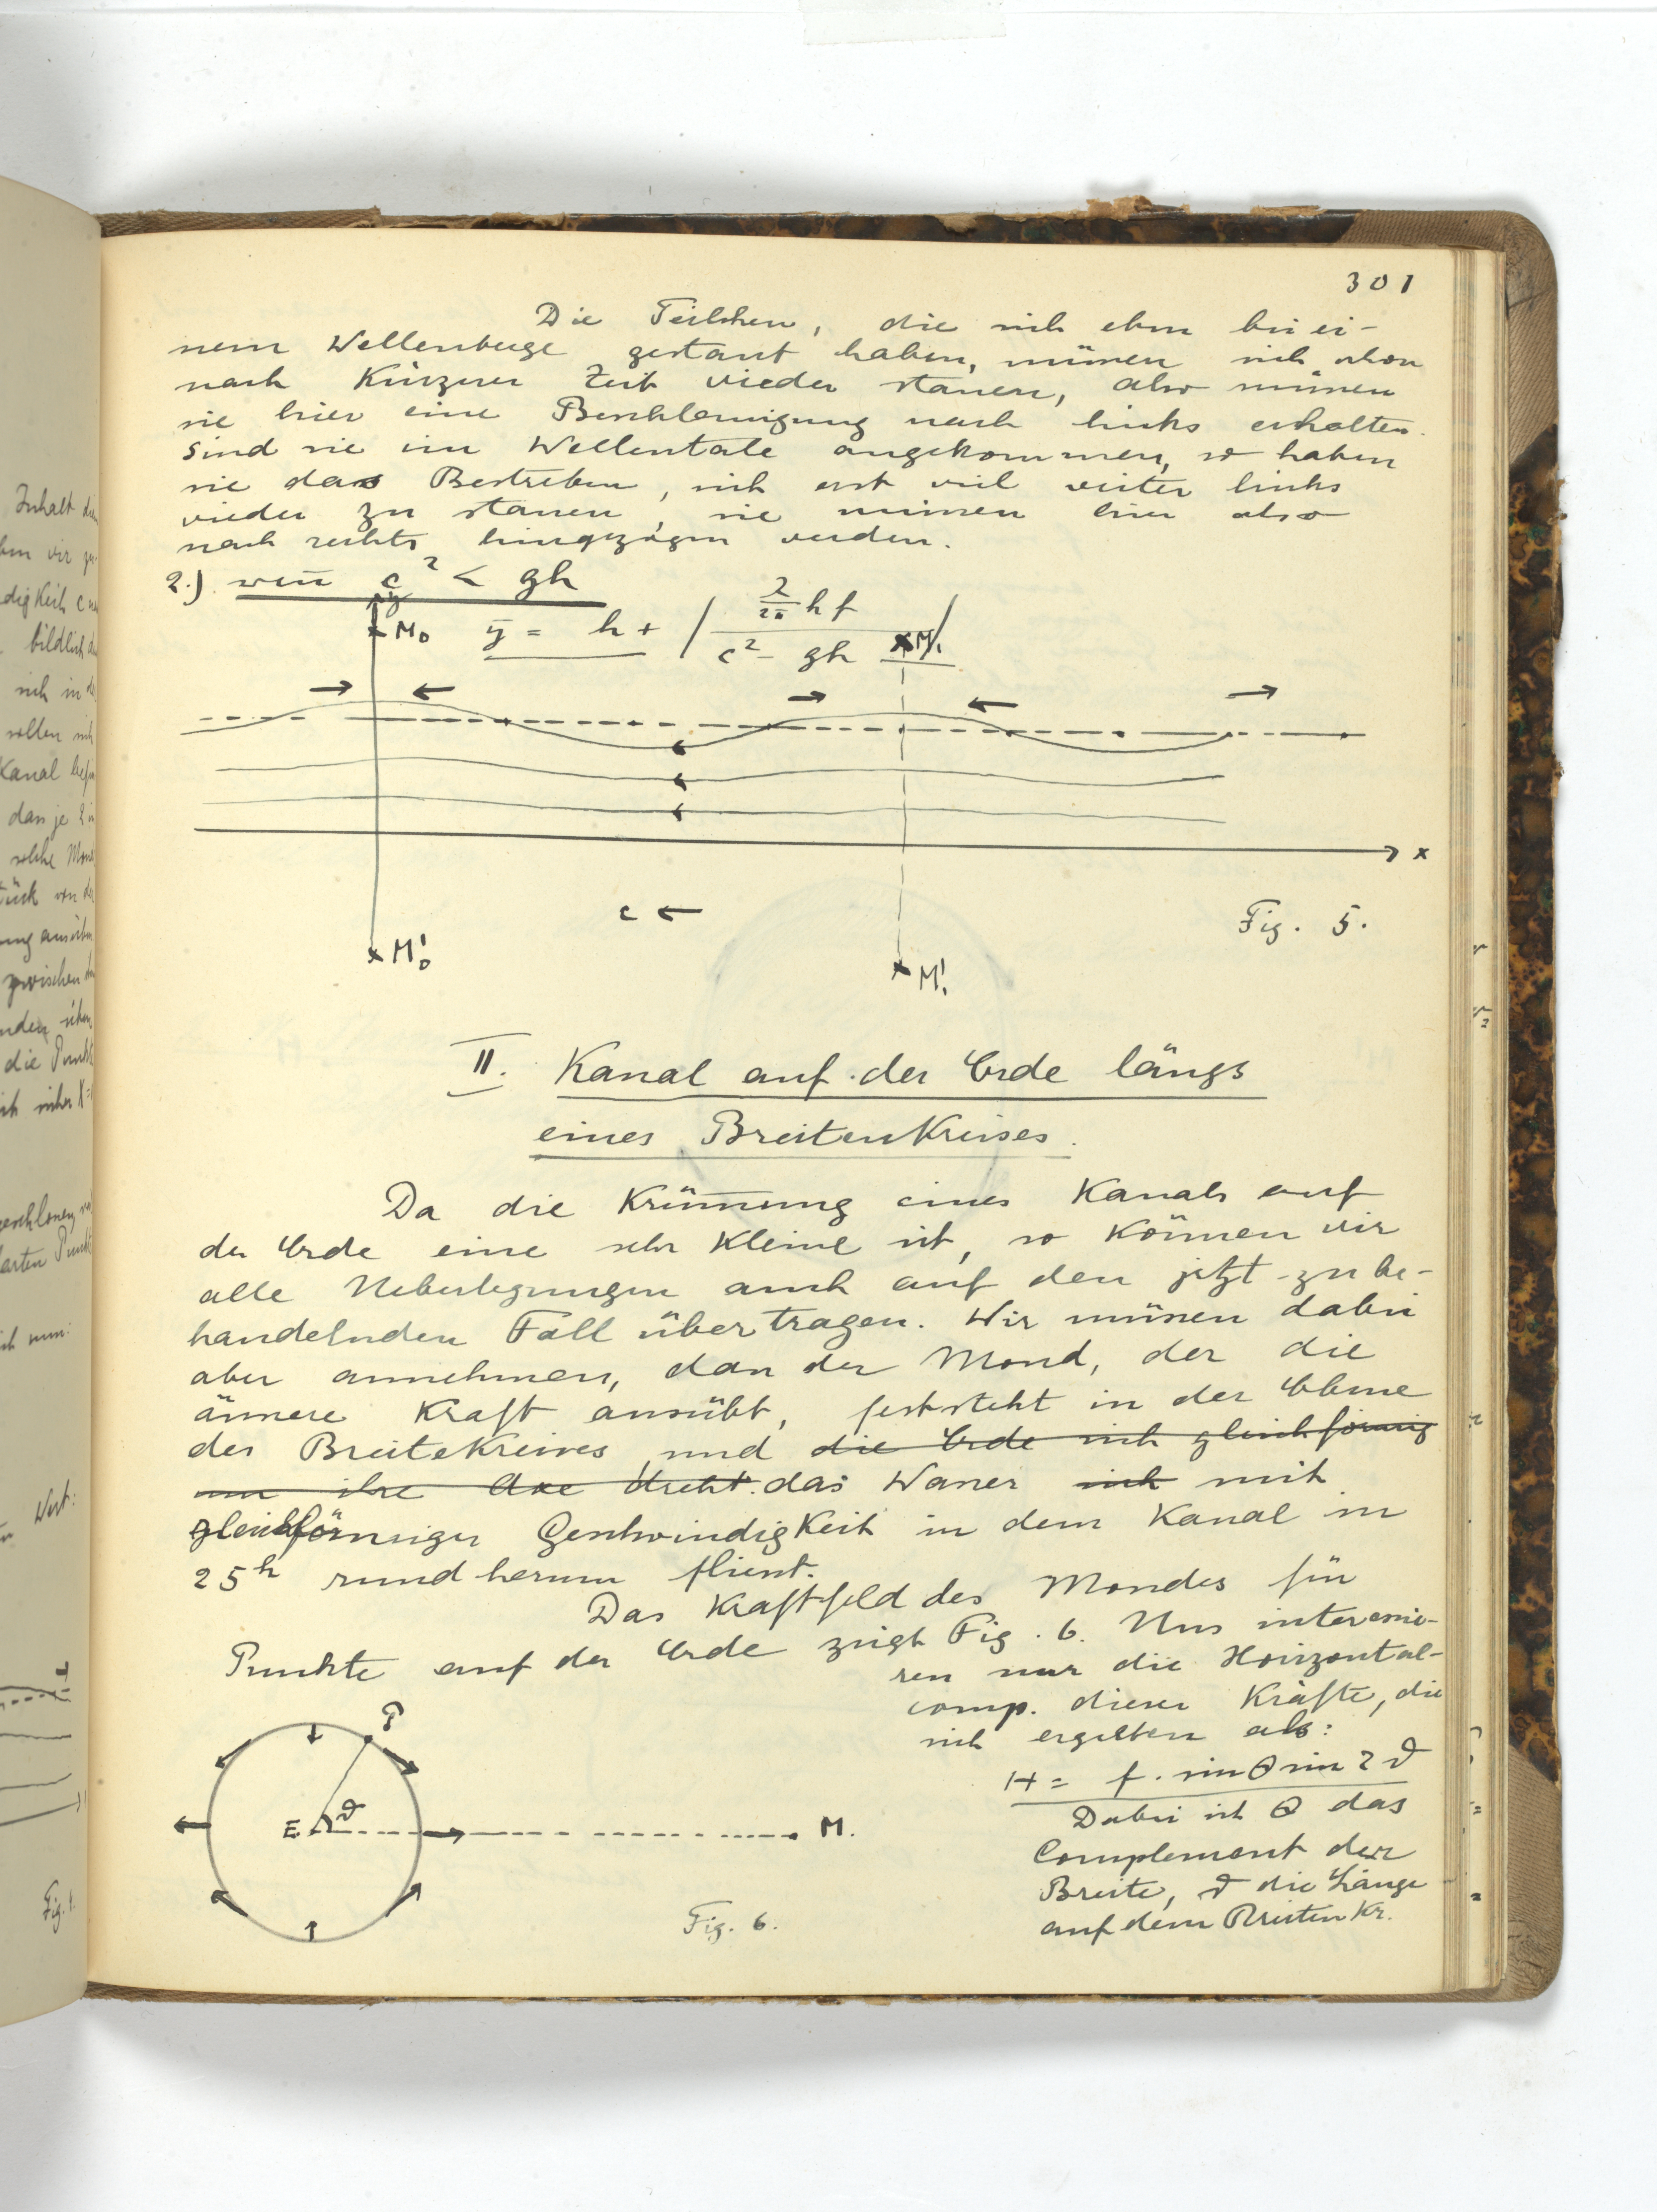 301
Die Teilchen, die sich eben bei ei-
nem Wellenberge gestaut haben, müssen sich schon
nach kürzerer Zeit wieder stauen, also müssen
sie hier eine Beschleunigung nach links erhalten.
Sind sie im Wellentale angekommen, so haben
sie das Bestreben, sich erst viel weiter links
wieder zu stauen, sie müssen hier also
nach rechts hingezogen werden.
2.) wen̅ c² < gh
y
M₀ y = h + | λ/2π h f / c² - gh | M₁
x
c ←
Fig. 5.
M₀'
M₁'
II. Kanal auf der Erde längs
eines Breitenkreises.
Da die Krüm̅ung eines Kanals auf
der Erde eine sehr kleine ist, so können wir
alle Ueberlegungen auch auf den jetzt zu be-
handelnden Fall übertragen. Wir müssen dabei
aber annehmen, dass der Mond, der die
äussere Kraft ausübt, feststeht in der Ebene
des Breitekreises und die Erde sich gleichförmig
um ihre Axe dreht. das Wasser sich mit
gleichförmiger Geschwindigkeit in dem Kanal in
25ʰ rund herum fliesst.
Das Kraftfeld des Mondes für
Punkte auf der Erde zeigt Fig. 6. Uns interessie-
ren nur die Horizontal-
comp. dieser Kräfte, die
sich ergeben als:
H = f. sin Θ sin 2 ϑ
Dabei ist Θ das
Complement der
Breite, ϑ die Länge
auf dem Breiten Kr.
P
E ϑ
M.
Fig. 6.
Inhalt
digkeit c
bildlich
sich in
wollen
Kanal
dass je 2
solche
zwischen
die Punkte
Wert:
Fig. 1.